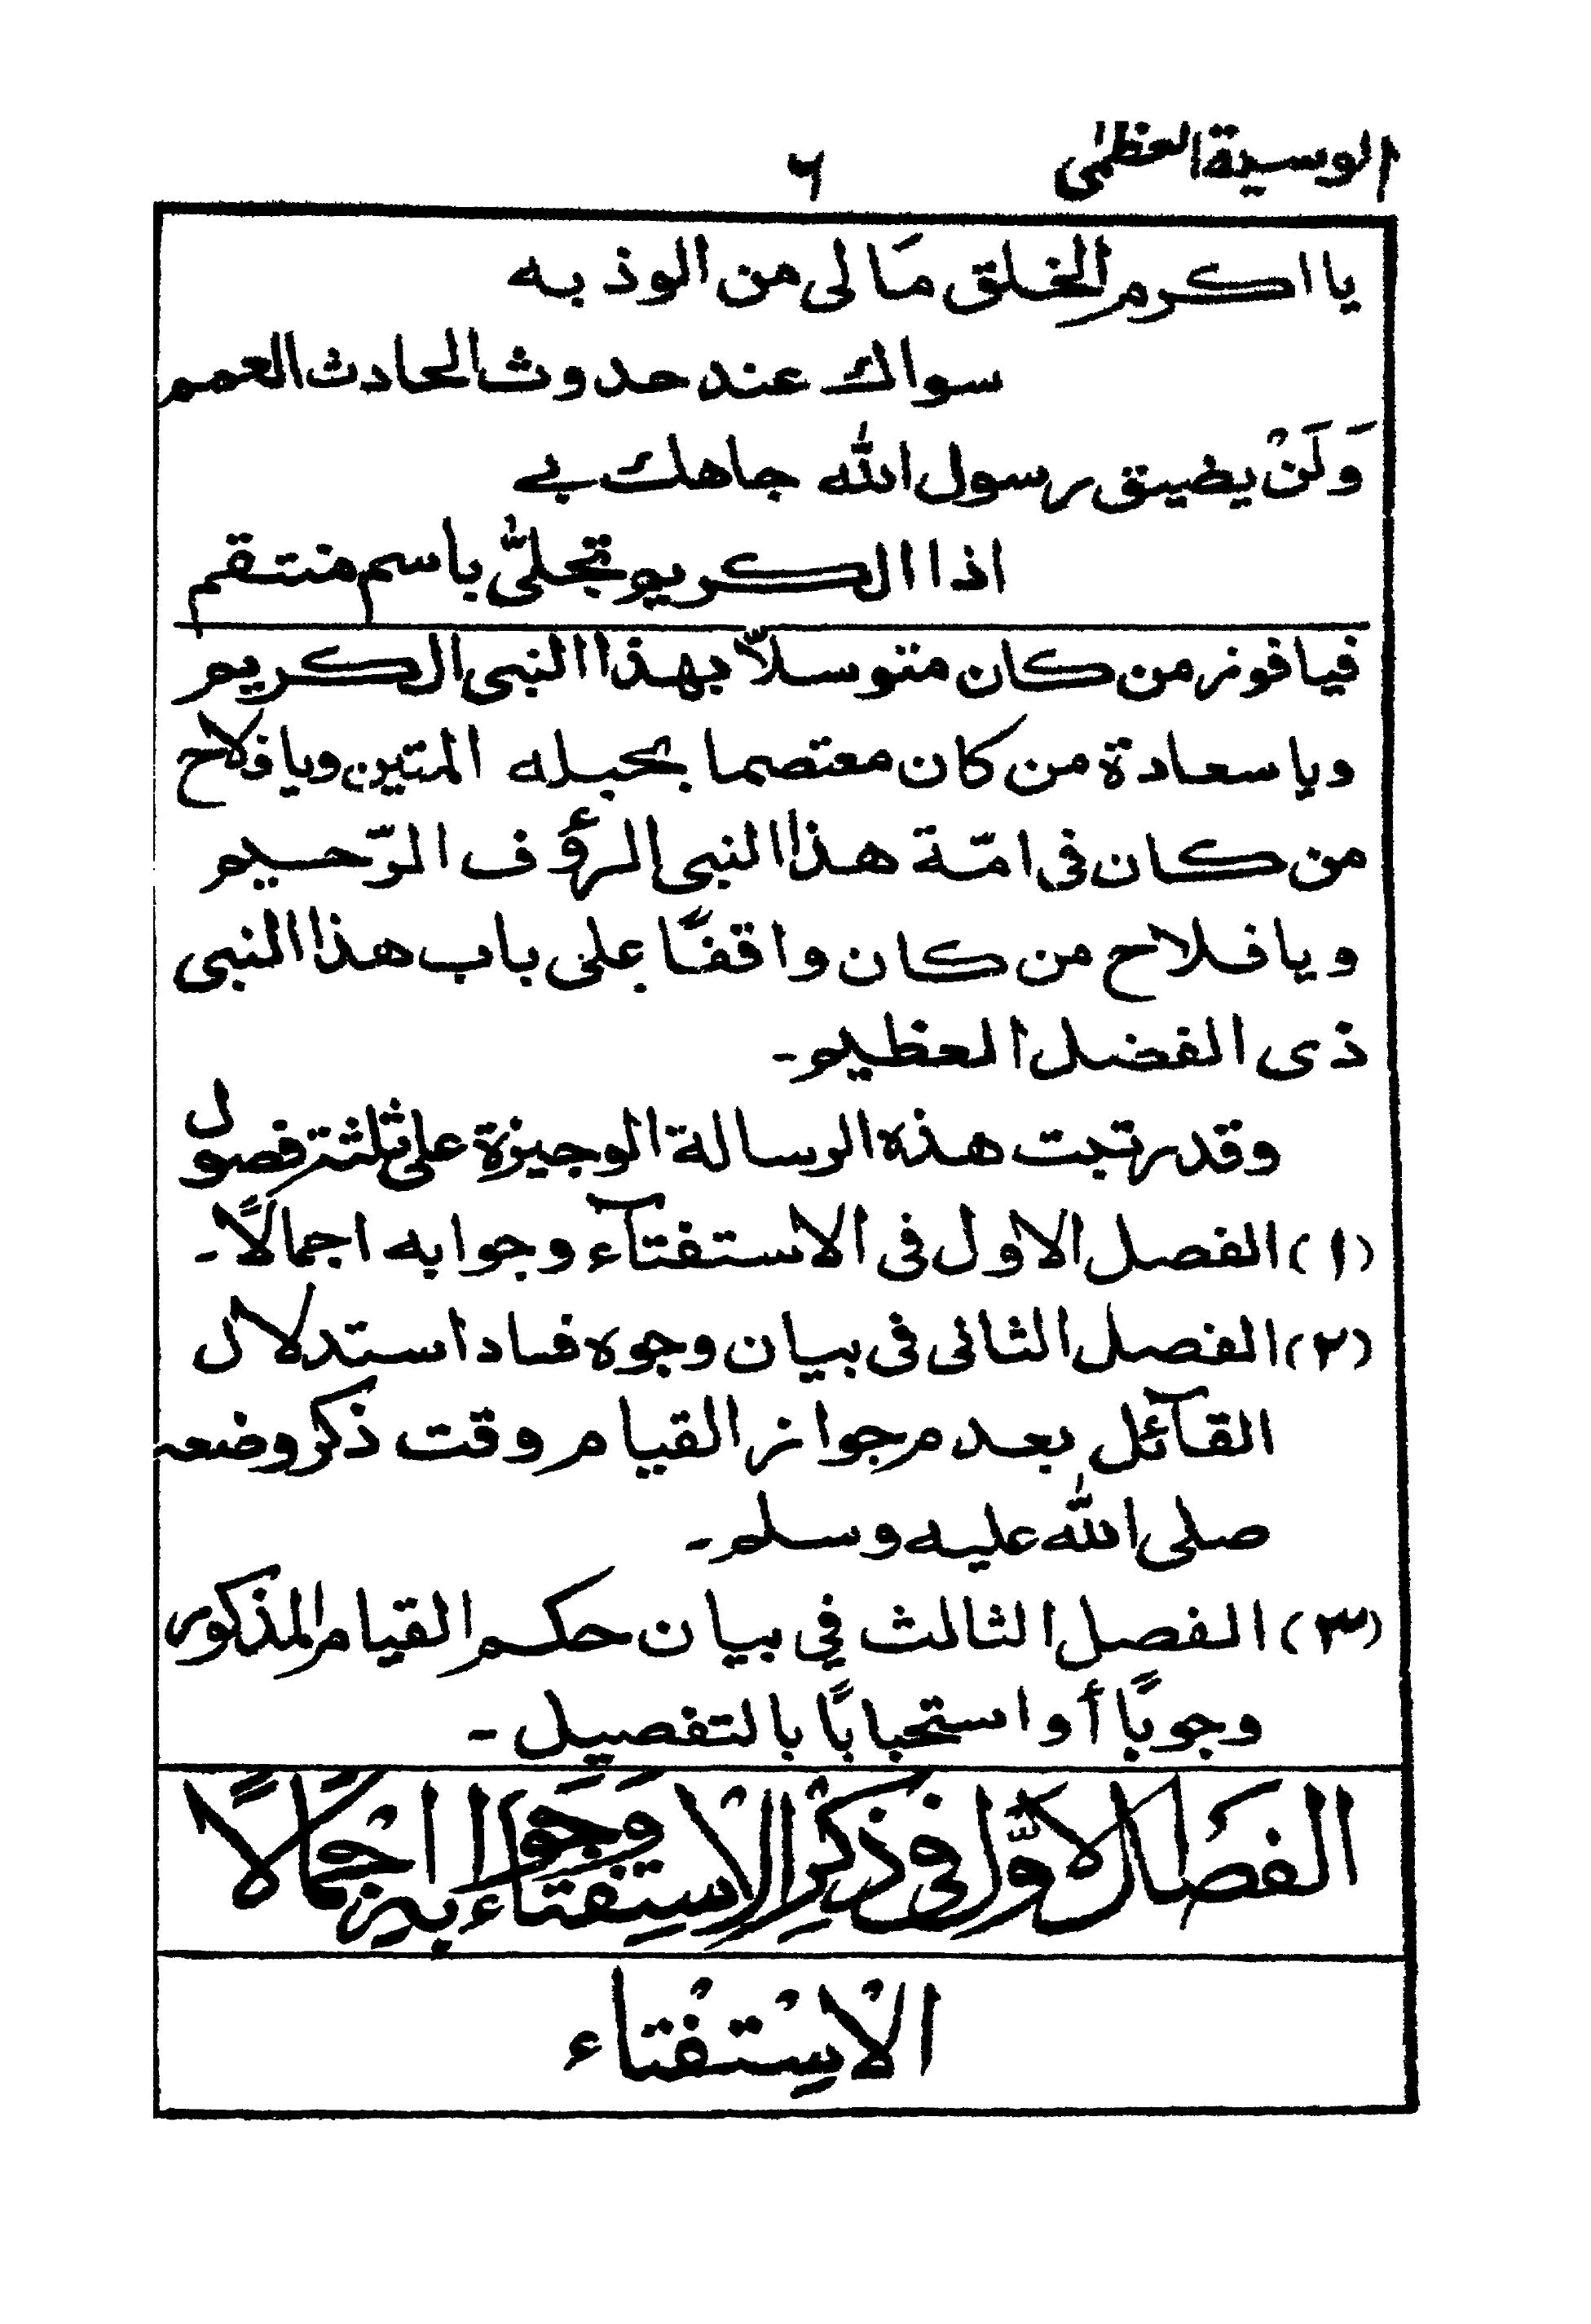 الوسيلة العظمى
٦
يا اكرم الخلق مَا لى من الوذ به
سواك عند حدوث الحادث العمم
وَلَنْ يضيق رسول الله جاهك بي
اذا الكريم تجلّى باسم منتقم
فيا فوز من كان متوسلاً بهذا النبى الكريم
ويا سعادة من كان معتصما بحبله المتين ويا فلاح
من كان فى امّة هذا النبى الرؤف الرّحيم
ويا فلاح من كان واقفًا على باب هذا النبى
ذى الفضل العظيم۔
وقد رتبت هذه الرسالة الوجيزة على ثلثة فصول
(١) الفصل الاول فى الاستفتآء وجوابه اجمالًا۔
(٢) الفصل الثانى فى بيان وجوه فساد استدلال
القآئل بعدم جواز القيام وقت ذكر وضعه
صلى الله عليه وسلم۔
(٣) الفصل الثالث في بيان حكم القيام المذكور
وجوبًا أو استحبابًا بالتفصيل۔
الفَصل الاوَّل فى ذكْرِ الْاستِفتاء وَجَوابه اجْمالًا
الْاسْتفْتاء